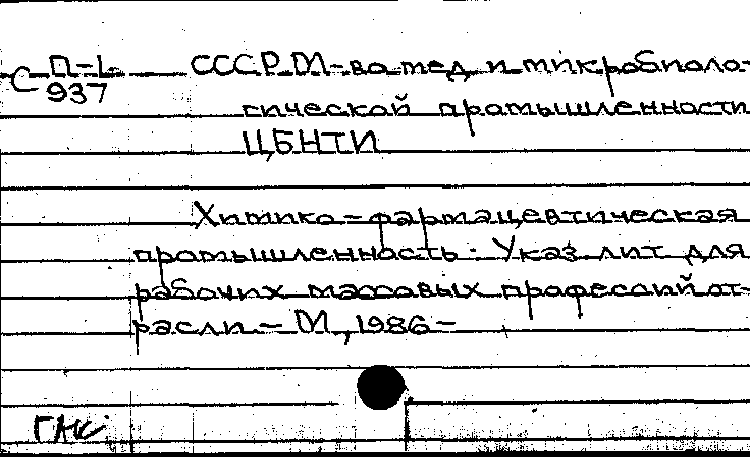 С П-1 СССР. М-во мед. и микробиоло-
937
гической промышленности
ЦБНТИ
Химико-фармацевтическая
промышленность. Указ. лит. для
рабочих массовых профессий от-
расли - М., 1986-
ГАК